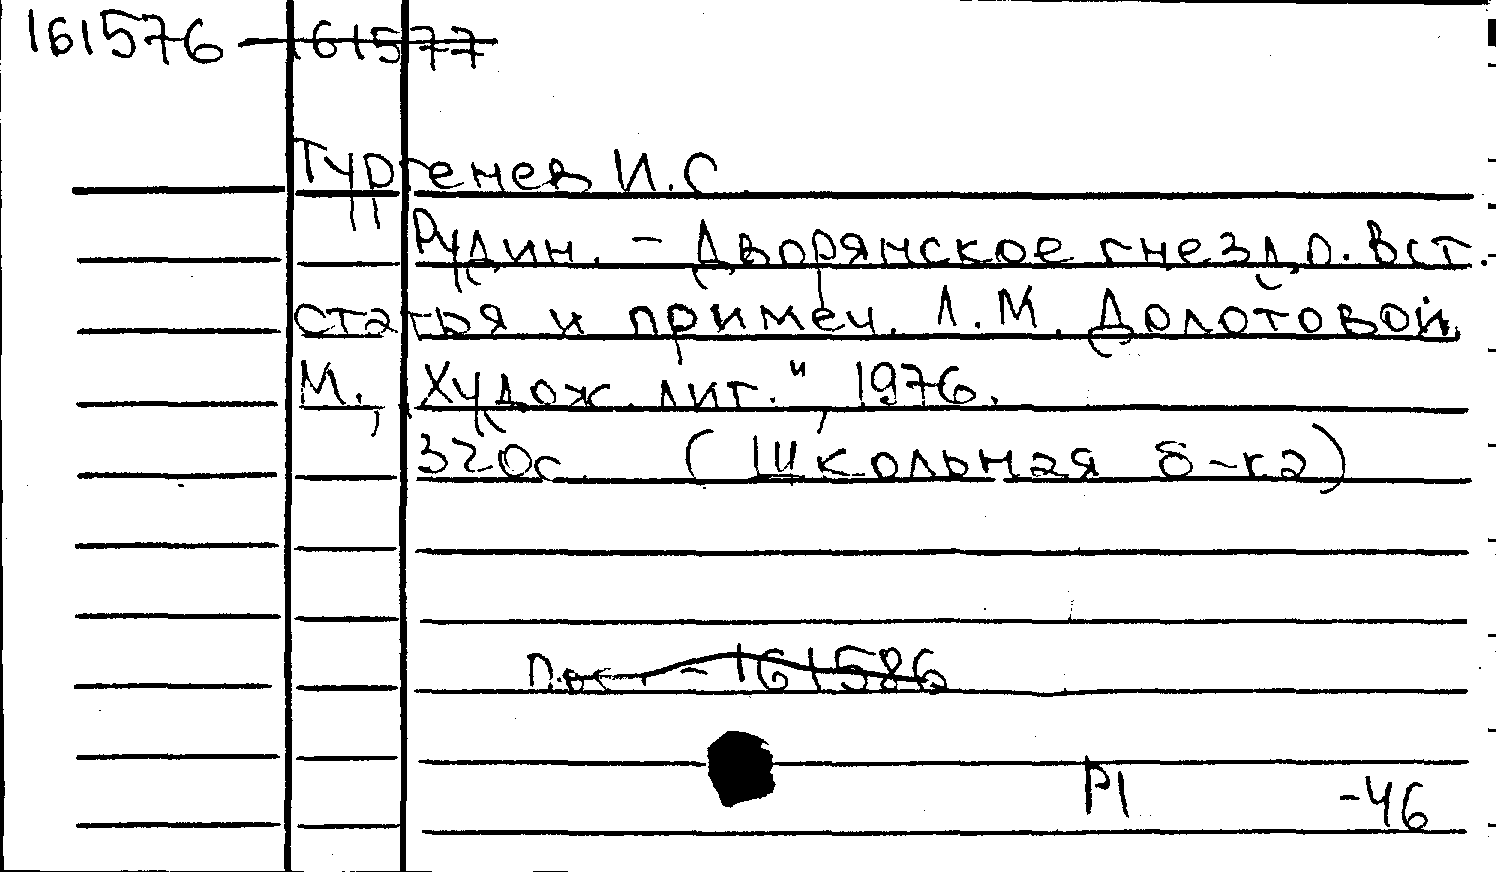 161576 - 161577
Тургенев И.С.
Рудин. - Дворянское гнездо. Вст.
статья и примеч. Л.М. Долотовой.
М., "Худож. лит.", 1976.
320с. (Школьная б-ка)
- 161586
Р1 -46